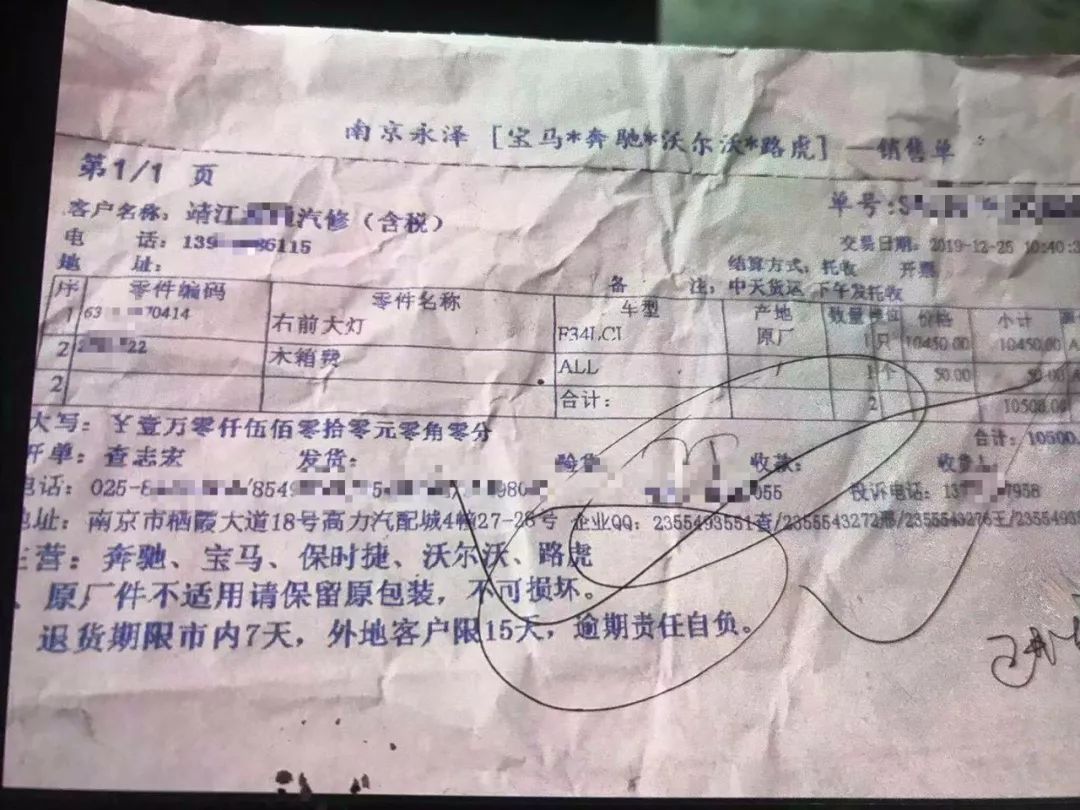 南京永泽 [宝马*奔驰*沃尔沃*路虎] 一销售单
第1/1 页
客户名称: 靖江 汽修（含税） 单号:S
电 话: 139 86115 交易日期: 2019-12-25 10:40:3
地 址: 结算方式: 托收 开票
备 注: 中天货运 下午发托收
序 零件编码 零件名称 车型 产地 数量 单位 价格 小计
1 63 70414 右前大灯 F34LCI 原厂 1 只 10450.00 10450.00
2 22 木箱费 ALL 1 个 50.00 50.00
2 合计: 2 10500.00
大写: ￥壹万零仟伍佰零拾零元零角零分 合计: 10500.
开单: 查志宏 发货: 验货 收款: 收货
电话: 025-8 /8549 980 055 投诉电话: 13 7958
地址: 南京市栖霞大道18号高力汽配城4幢27-28号 企业QQ: 2355493551查/2355543272邢/2355543276王/23554
主营: 奔驰、宝马、保时捷、沃尔沃、路虎
、原厂件不适用请保留原包装，不可损坏。
退货期限市内7天，外地客户限15天，逾期责任自负。